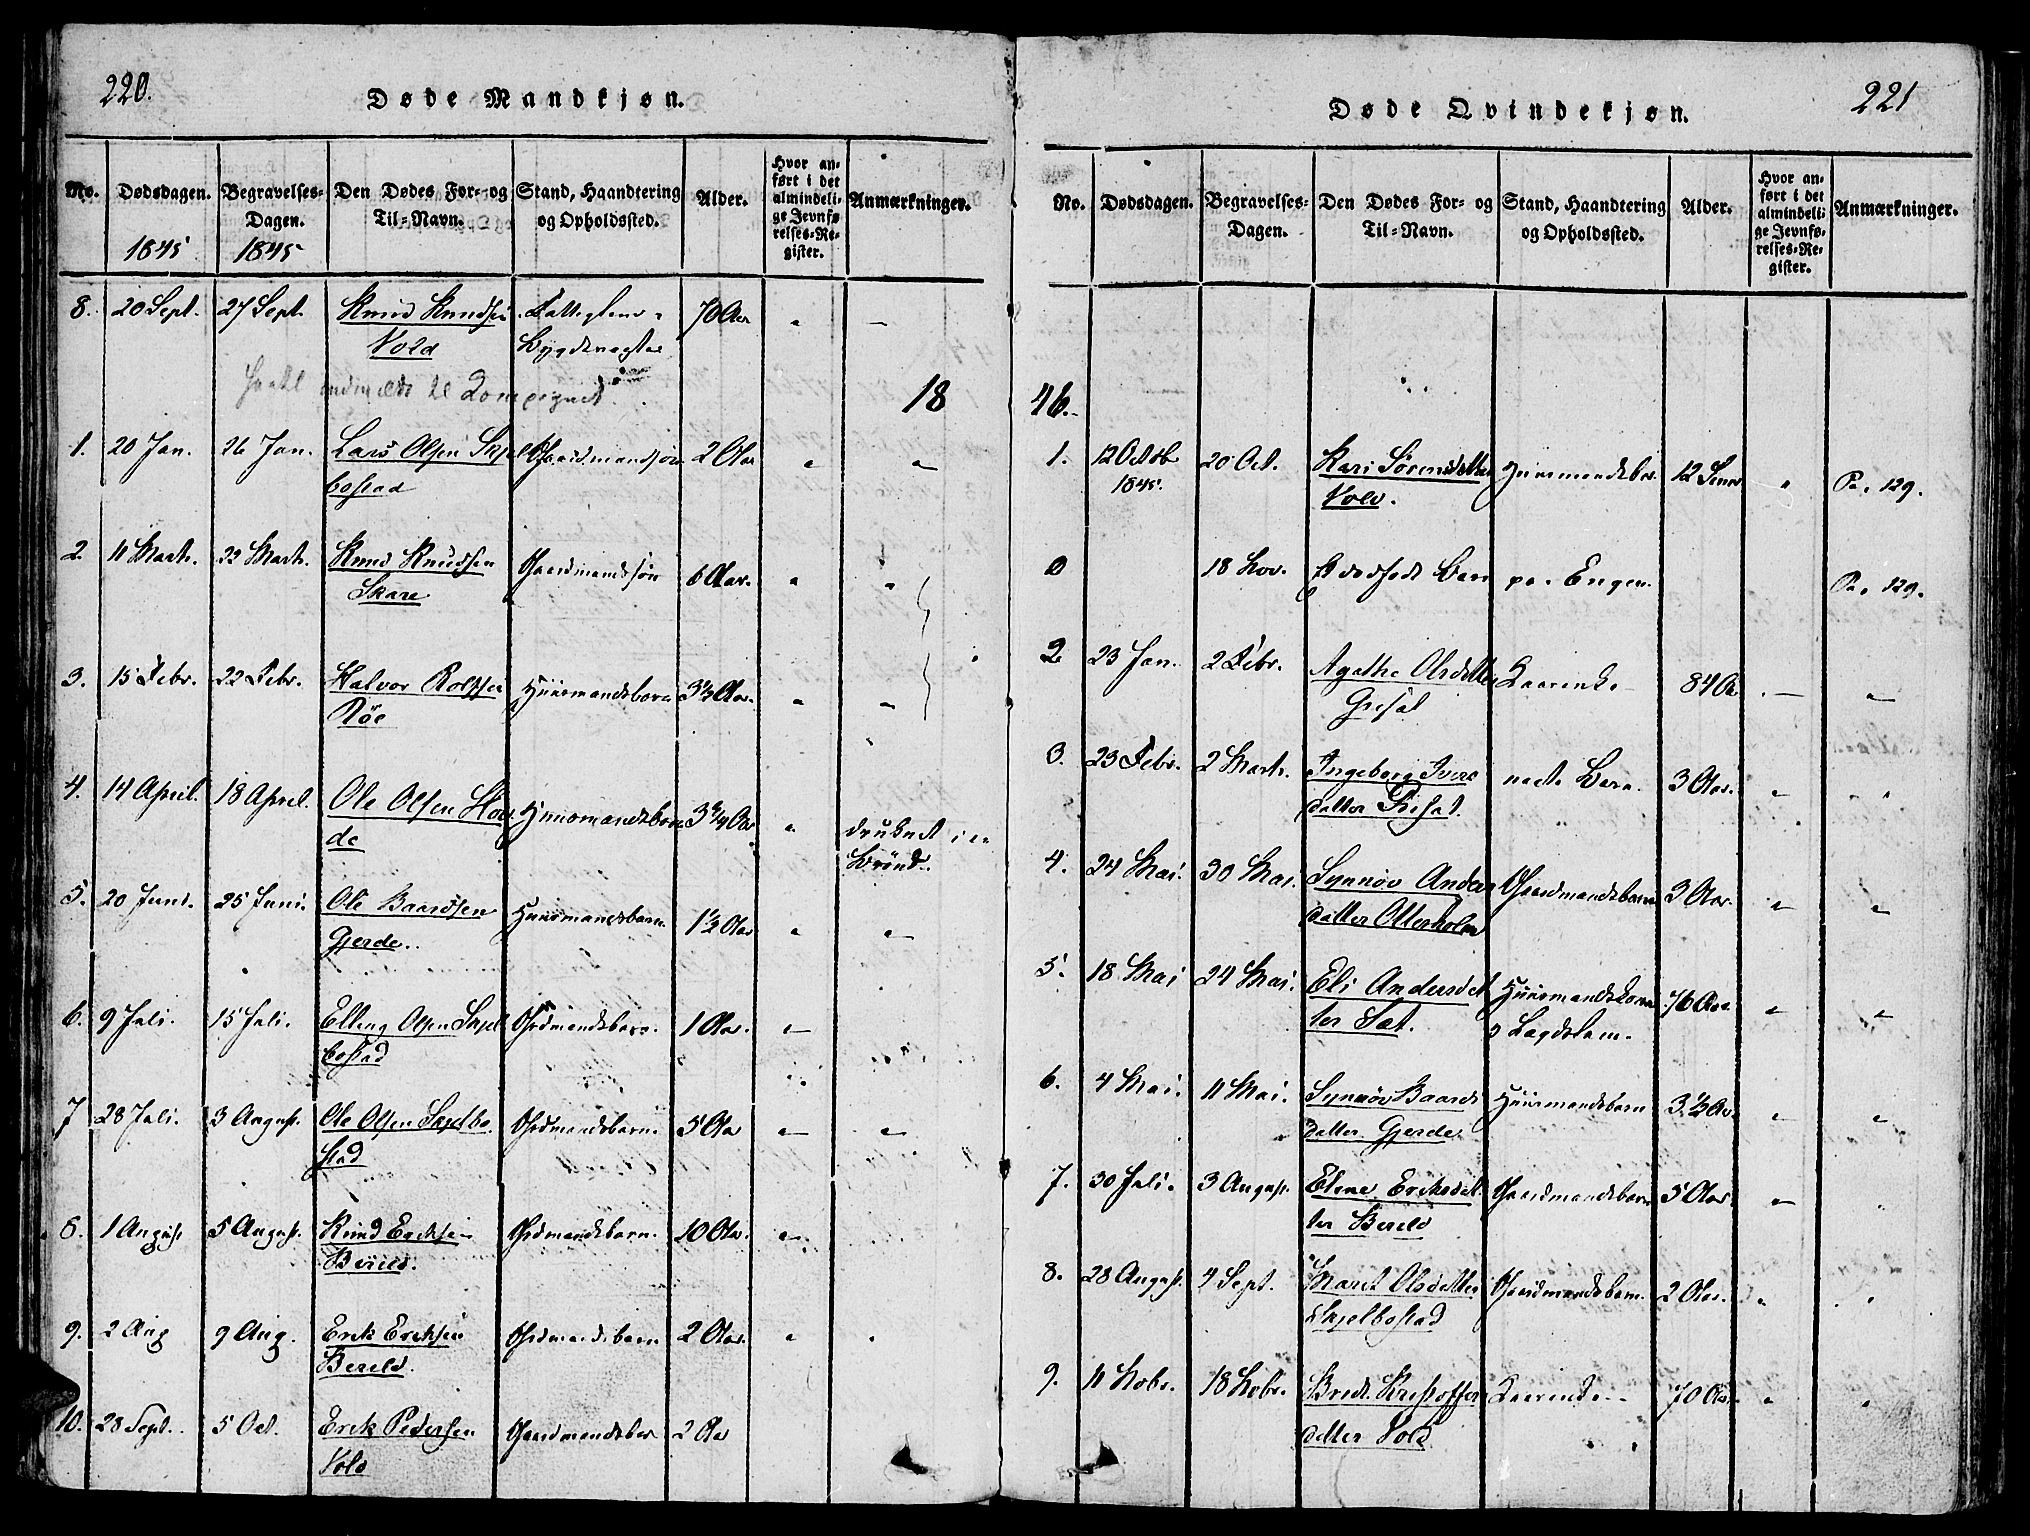 220.
Døde Mandkjøn.
No. Dødsdagen. Begravelses-Dagen. Den Dødes For- og Til-Navn. Stand, Haandtering og Opholdssted. Alder. Hvor anført i det almindelige Jevnførelses-Register. Anmærkninger.
1845 1845
8. 20 Sept. 27 Sept. Knud Knudsen 70 Aar " —
Vold
18
1. 20 Jan. 26 Jan. Lars Olsen Skjel Gaardmandsøn 2 Aar " "
bostad
2. 11 Marts. 22 Marts. Knud Knudsen Gaardmandssøn 6 Aar. " "
Skare
3. 15 Febr. 22 Febr. Halvor Rolfsen Huusmandsbarn 3½ Aar. " "
Röe
4. 14 April. 18 April. Ole Olsen Hov Huusmandsbarn 3¾ Aar " druknet i en
de Brønd.
5. 20 Juni. 25 Juni. Ole Baardsen Huusmandsbarn 1½ Aar " "
Gjerde.
6. 9 Juli. 15 Juli. Elling Olsen Skjel Grdmandsbarn. 1 Aar. "
bostad
7 28 Juli. 3 August. Ole Olsen Skjelbo Grdmandsbarn. 5 Aar " "
stad
8. 1 August 5 August. Knud Eriksen Grdmandsbarn. 10 Aar. "
9. 2 Aug 9 Aug. Erik Eriksen Grdmandsbarn 2 Aar. " "
Bereld.
10. 28 Sept. 5 Oct. Erik Pedersen Gaardmandsbar 2 Aar
Vold
221
Døde Qvindekjøn.
No. Dødsdagen. Begravelses-Dagen. Den Dødes For- og Til-Navn. Stand, Haandtering og Opholdssted. Alder. Hvor anført i det almindelige Jevnførelses-Register. Anmærkninger.
46.
1. 12 Octob 20 Oct. Kari Sørensdatter Huusmandsbar. 12 " Pa. 129.
1845. Vold.
0 18 Nov. Dødfødt Barn paa Engen. Pa. 129.
2 23 Jan. 2 Febr. Agathe Olsdatter 84 Aa — "
3. 23 Febr. 2 Marts. Ingeborg Ivers 3 Aar. " "
datter
4. 24 Mai. 30 Mai. Synnøv Anders Gaardmandsbarn 3 Aar. " "
datter Otterholm
5. 18 Mai 24 Mai. Eli Andersdat 76 Aar " "
ter Sæt.
6. 4 Mai. 11 Mai. Synnøv Baards Huusmandsbarn 3½ Aar. " "
datter Gjerde.
7. 30 Juli. 3 August. Elene Eriksdat Gaardmandsbarn 5 Aar "
ter Bereld
8. 28 August. 4 Sept. Marit Olsdatter Gaardmandsbarn. 2 Aar. " "
Skjelbostad
9. 11 Nobr. 18 Nobr. Kristoffer 70 Aar " "
datter Vold